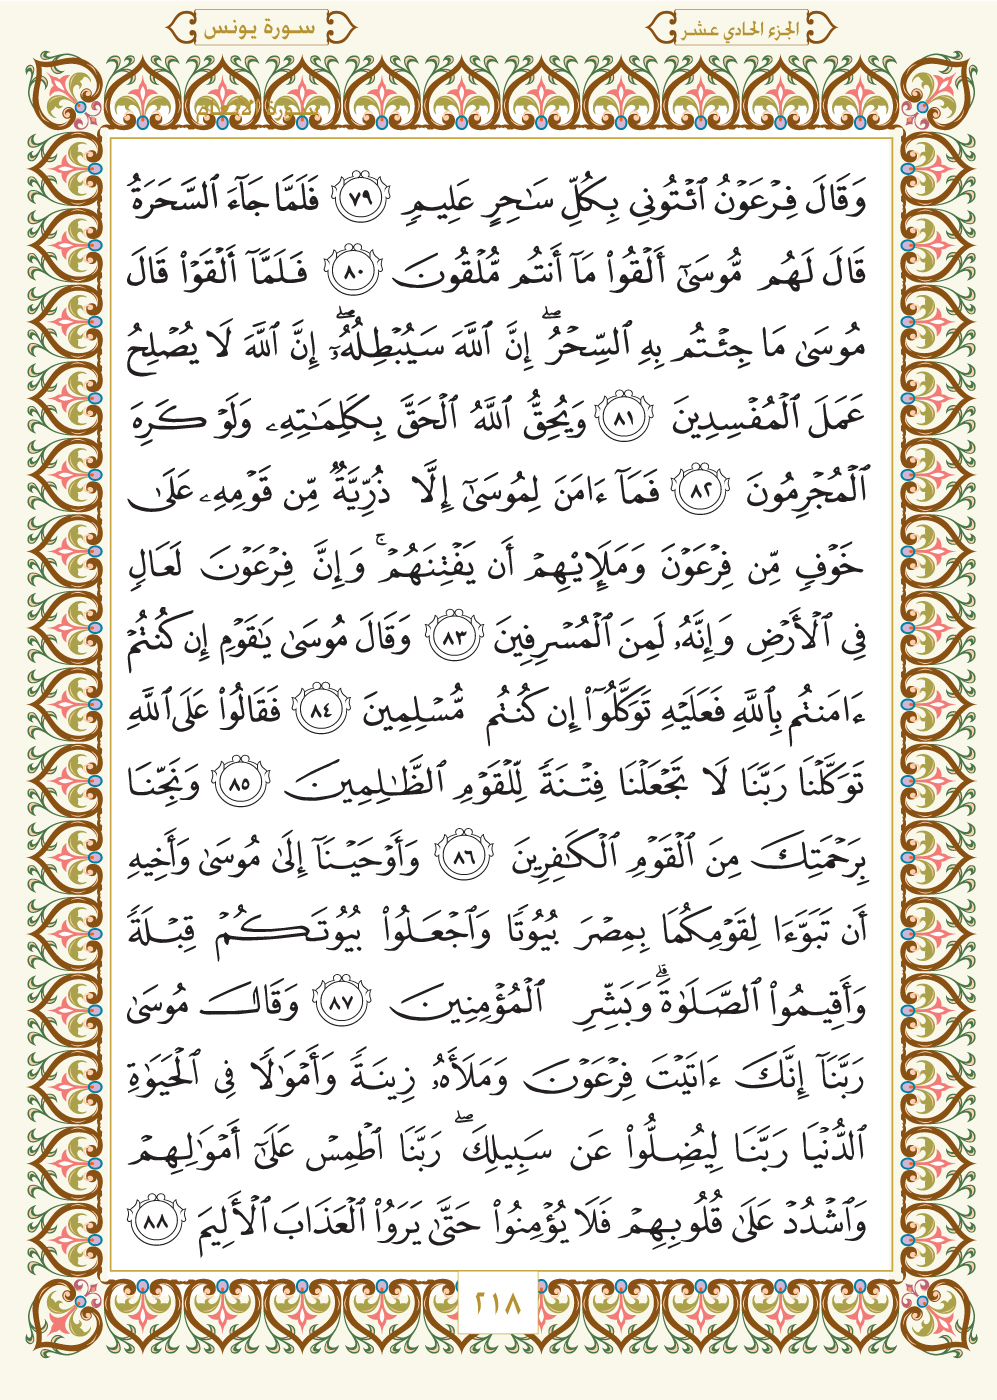 الجزء الحادي عشر
سورة يونس
وَقَالَ فِرْعَوْنُ ٱئْتُونِي بِكُلِّ سَٰحِرٍ عَلِيمٍ ٧٩ فَلَمَّا جَآءَ ٱلسَّحَرَةُ
قَالَ لَهُم مُّوسَىٰٓ أَلْقُوا۟ مَآ أَنتُم مُّلْقُونَ ٨٠ فَلَمَّآ أَلْقَوْا۟ قَالَ
مُوسَىٰ مَا جِئْتُم بِهِ ٱلسِّحْرُۖ إِنَّ ٱللَّهَ سَيُبْطِلُهُۥٓۖ إِنَّ ٱللَّهَ لَا يُصْلِحُ
عَمَلَ ٱلْمُفْسِدِينَ ٨١ وَيُحِقُّ ٱللَّهُ ٱلْحَقَّ بِكَلِمَٰتِهِۦ وَلَوْ كَرِهَ
ٱلْمُجْرِمُونَ ٨٢ فَمَآ ءَامَنَ لِمُوسَىٰٓ إِلَّا ذُرِّيَّةٌ مِّن قَوْمِهِۦ عَلَىٰ
خَوْفٍ مِّن فِرْعَوْنَ وَمَلَإِي۟هِمْ أَن يَفْتِنَهُمْۚ وَإِنَّ فِرْعَوْنَ لَعَالٍ
فِي ٱلْأَرْضِ وَإِنَّهُۥ لَمِنَ ٱلْمُسْرِفِينَ ٨٣ وَقَالَ مُوسَىٰ يَٰقَوْمِ إِن كُنتُمْ
ءَامَنتُم بِٱللَّهِ فَعَلَيْهِ تَوَكَّلُوٓا۟ إِن كُنتُم مُّسْلِمِينَ ٨٤ فَقَالُوا۟ عَلَى ٱللَّهِ
تَوَكَّلْنَا رَبَّنَا لَا تَجْعَلْنَا فِتْنَةً لِّلْقَوْمِ ٱلظَّٰلِمِينَ ٨٥ وَنَجِّنَا
بِرَحْمَتِكَ مِنَ ٱلْقَوْمِ ٱلْكَٰفِرِينَ ٨٦ وَأَوْحَيْنَآ إِلَىٰ مُوسَىٰ وَأَخِيهِ
أَن تَبَوَّءَا لِقَوْمِكُمَا بِمِصْرَ بُيُوتًا وَٱجْعَلُوا۟ بُيُوتَكُمْ قِبْلَةً
وَأَقِيمُوا۟ ٱلصَّلَوٰةَۗ وَبَشِّرِ ٱلْمُؤْمِنِينَ ٨٧ وَقَالَ مُوسَىٰ
رَبَّنَآ إِنَّكَ ءَاتَيْتَ فِرْعَوْنَ وَمَلَأَهُۥ زِينَةً وَأَمْوَٰلًا فِي ٱلْحَيَوٰةِ
ٱلدُّنْيَا رَبَّنَا لِيُضِلُّوا۟ عَن سَبِيلِكَۖ رَبَّنَا ٱطْمِسْ عَلَىٰٓ أَمْوَٰلِهِمْ
وَٱشْدُدْ عَلَىٰ قُلُوبِهِمْ فَلَا يُؤْمِنُوا۟ حَتَّىٰ يَرَوُا۟ ٱلْعَذَابَ ٱلْأَلِيمَ ٨٨
٢١٨